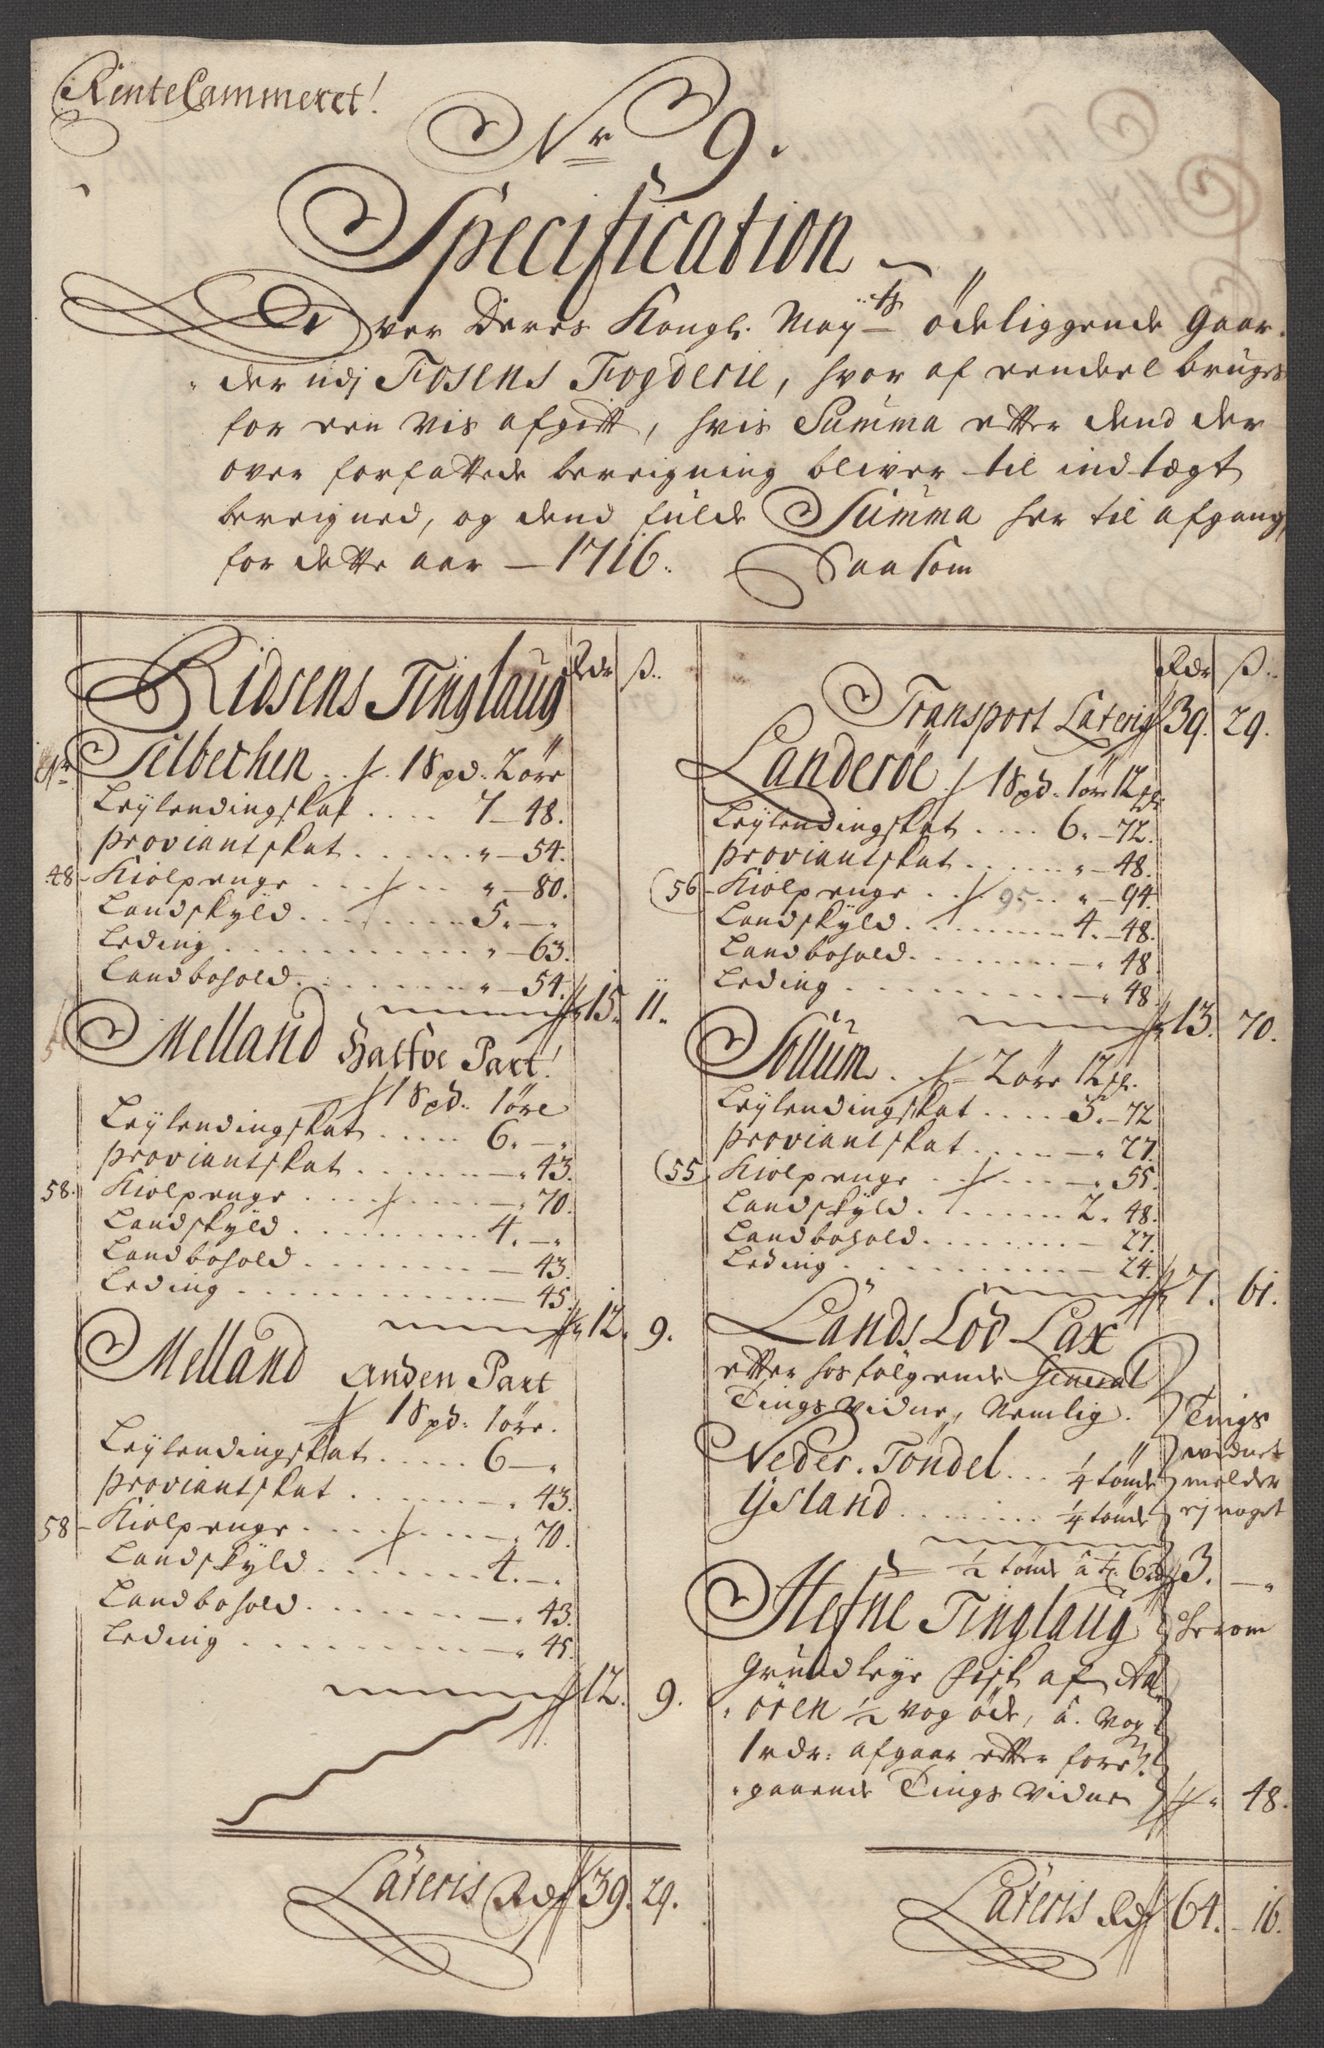 RenteCammeret!
Nr 9.
Specification
Over Deres Kongl. Mayts ödeliggende Gaar-
der udj Fosens Fogderie, hvor af eendeel bruges
for een vis afgift, hvis Summa efter dend der
over forfattede bereigning bliver til indtægt
bereigned, og dend fulde Summa her til afgang
for dette aar 1716. Saasom
Rdr ß.
Ridsens Tinglaug
Selbechen . . 1 Spd. 2 öre
Leylendingskat .... 7 - 48.
Proviantskat ...... " - 54.
48 - Kiolpenge ...... " - 80.
Landskyld ........ 5. - "
Leding ......... " - 63.
Landbohold ........ " - 54.
15. 11.
Melland Halfve Part!
1 Spd. 1 öre
Leylendingskat ..... 6. - "
Proviantskat ....... - " 43.
58. Kiolpenge ....... - " 70.
Landskyld ......... 4. - "
Landbohold ........ - 43.
Leding .......... - 45.
12. 9.
Melland Anden Part
1 Spd. 1 öre.
Leylendingskat ..... 6 - "
Proviantskat ....... - " 43.
58 - Kiolpenge ....... - " 70.
Landskyld ........ 4. - "
Landbohold ........ - " 43.
Leding ......... - " 45.
12. 9.
Lateris Rdr 39. 29.
Rdr ß.
Transport Lateris 39. 29.
Landeröe 1 Spd. 1 öre 12 
Leylendingskat .... 6. - 72.
Proviantskat ...... " - 48.
56 - Kiolpenge ... 95 .. " - 94.
Landskyld ........ 4. - 48.
Landbohold ....... - " 48
Leding ......... - " 48.
13. 70.
Sollum . . 2 öre 12 
Leylendingskat .... 3. - 72
Proviantskat ..... - " 27.
55 Kiolpenge ...... - " 55.
Landskyld ....... 2. 48.
Landbohold ........ - 27.
Leding .......... - 24.
7. 61.
Lands Lod Lax
efter hosfölgende General
Tings Vidne, Nemlig. Tings
Neder. Töndel ... 1/4 tönde vidnet melder
Ysland ........ 1/4 tönde ej noget
1/2 tönde a 6 rdr 3. - "
Hefne Tinglaug herom
Grundleye Fisk af
ören 1/2 vog öde, a. Vog
1 rdr: afgaar efter fore-
gaaende Tings Vidne " 48.
Lateris Rdr 64. - 16.